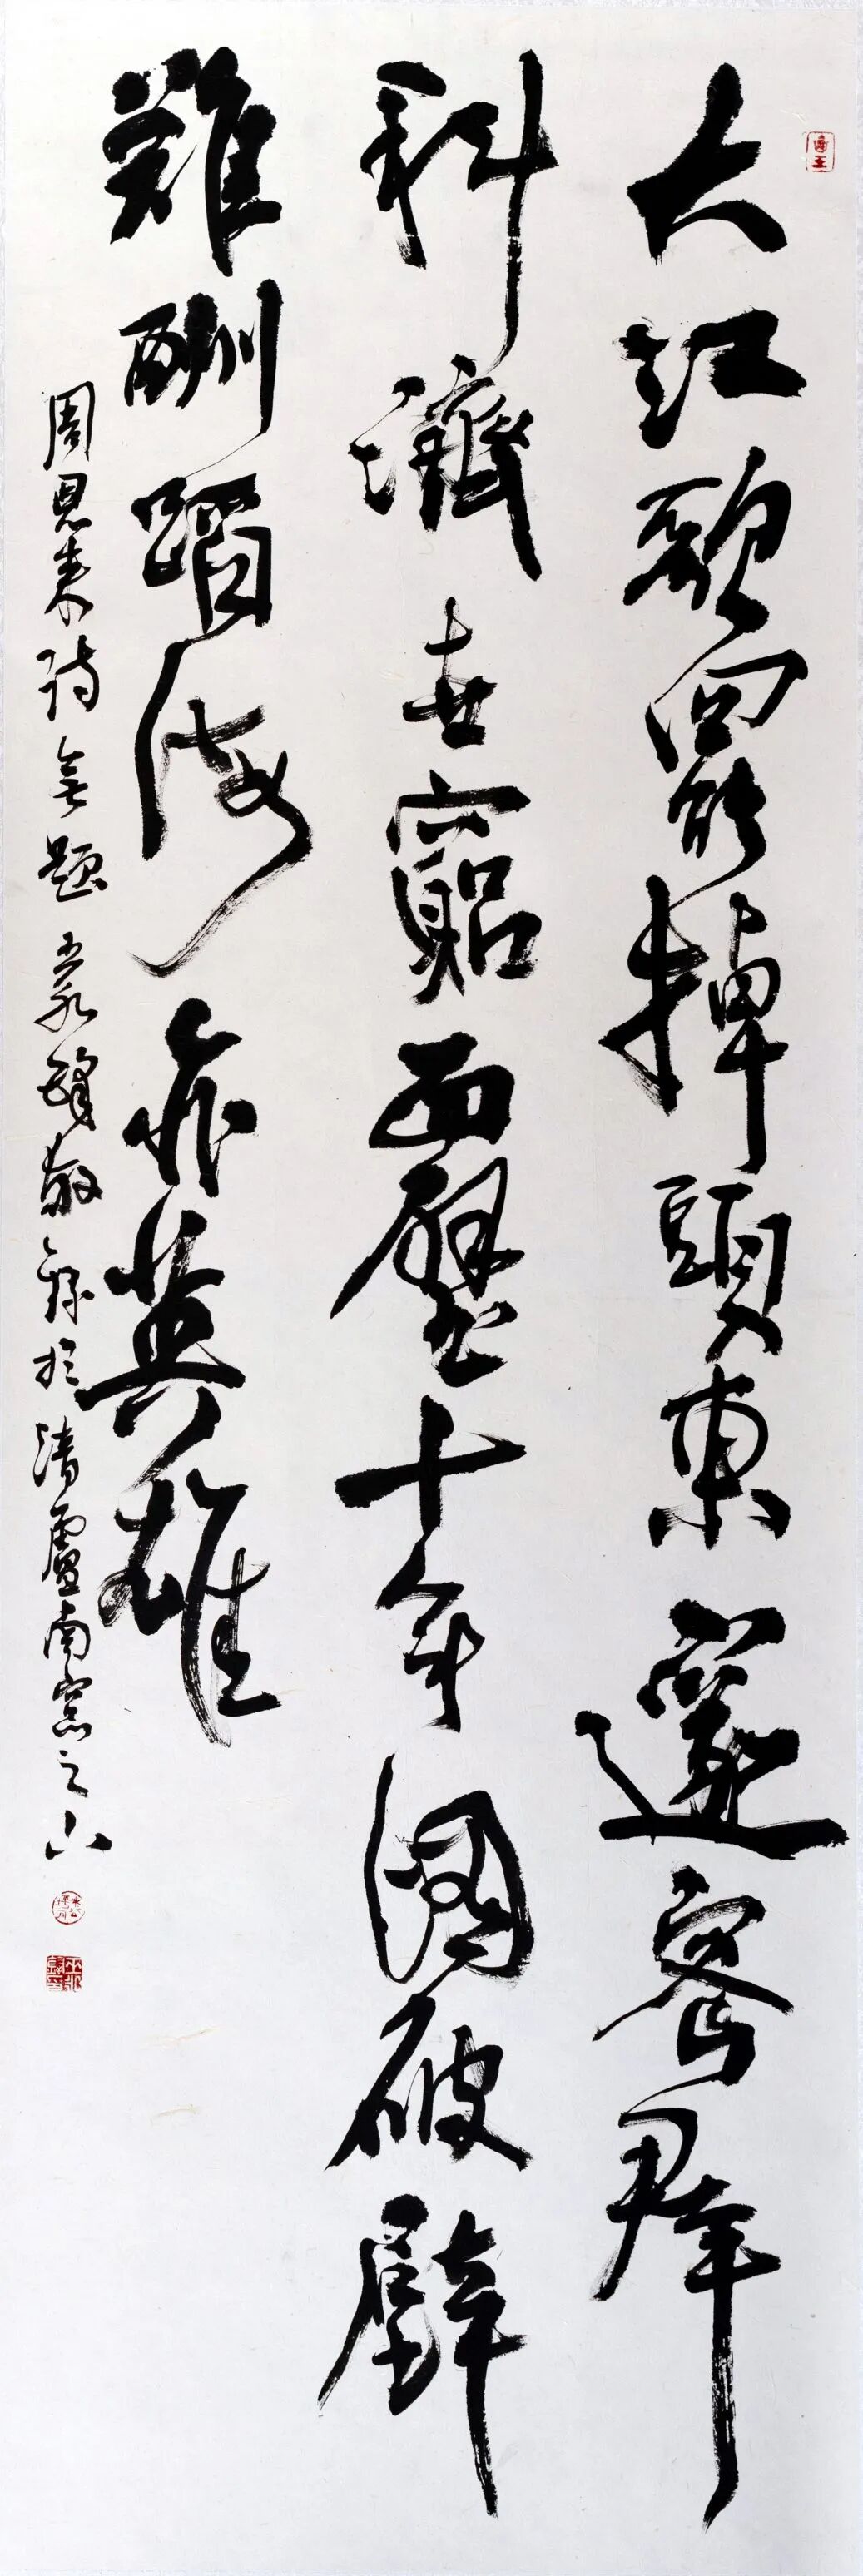 大江歌罷掉頭東邃密群
科濟世窮面壁十年圖破壁
難酬蹈海亦英雄
周恩來詩無題 永鋒敬錄於清廬南窗之